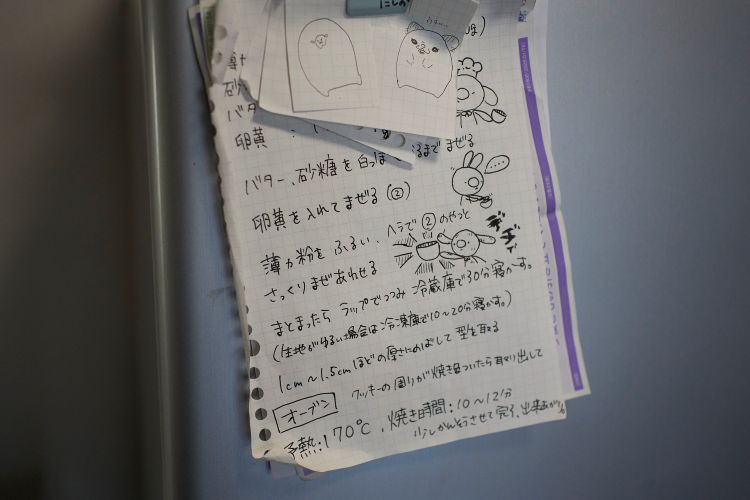 薄力
砂
バター
卵黄
バター、砂糖を白っぽ るまで まぜる
卵黄を入れてまぜる(②)
薄力粉をふるい、ヘラで②のやっと
さっくりまぜあわせる
まとまったら ラップでつつみ 冷蔵庫で30分寝かす。
(生地がゆるい場合は冷凍庫で10〜20分寝かす。)
1cm〜1.5cmほどの厚さにのばして 型を取る
オーブン クッキーの周りが焼き色ついたら取り出して
予熱:170℃、焼き時間:10〜12分
少しかんそうさせて完了、出来あがり。